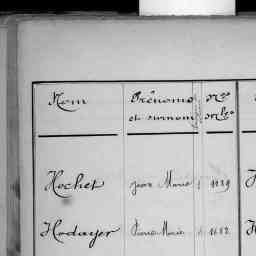 Nom Prénoms Nos
et surnom Mle
Hochet Jean Marie 1 1139
Hodayer Pierre Marie 1652